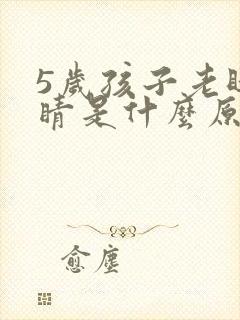 5歲孩子老眨
睛是什麼原
愈塵